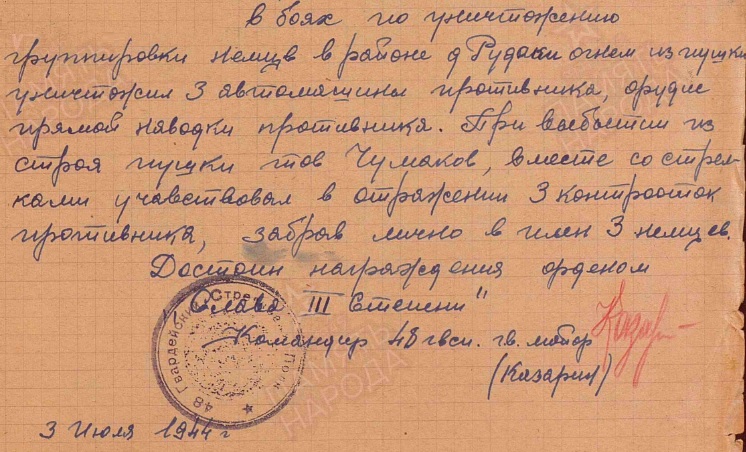 в боях по уничтожению
группировки немцев в районе д Рудаки огнем из пушки
уничтожил 3 автомашины противника, орудие
прямой наводки противника. При выбытии из
строя пушки тов Чумаков, вместе со стрел-
ками учавствовал в отражении 3 контратак
противника, забрав лично в плен 3 немцев.
Достоин награждения орденом
„Слава III Степени"
Командир 48 гвсп. гв. майор
(Казарин)
48 Гвардейский Стрелк. Полк
3 Июля 1944 г
ПАМЯТЬ НАРОДА